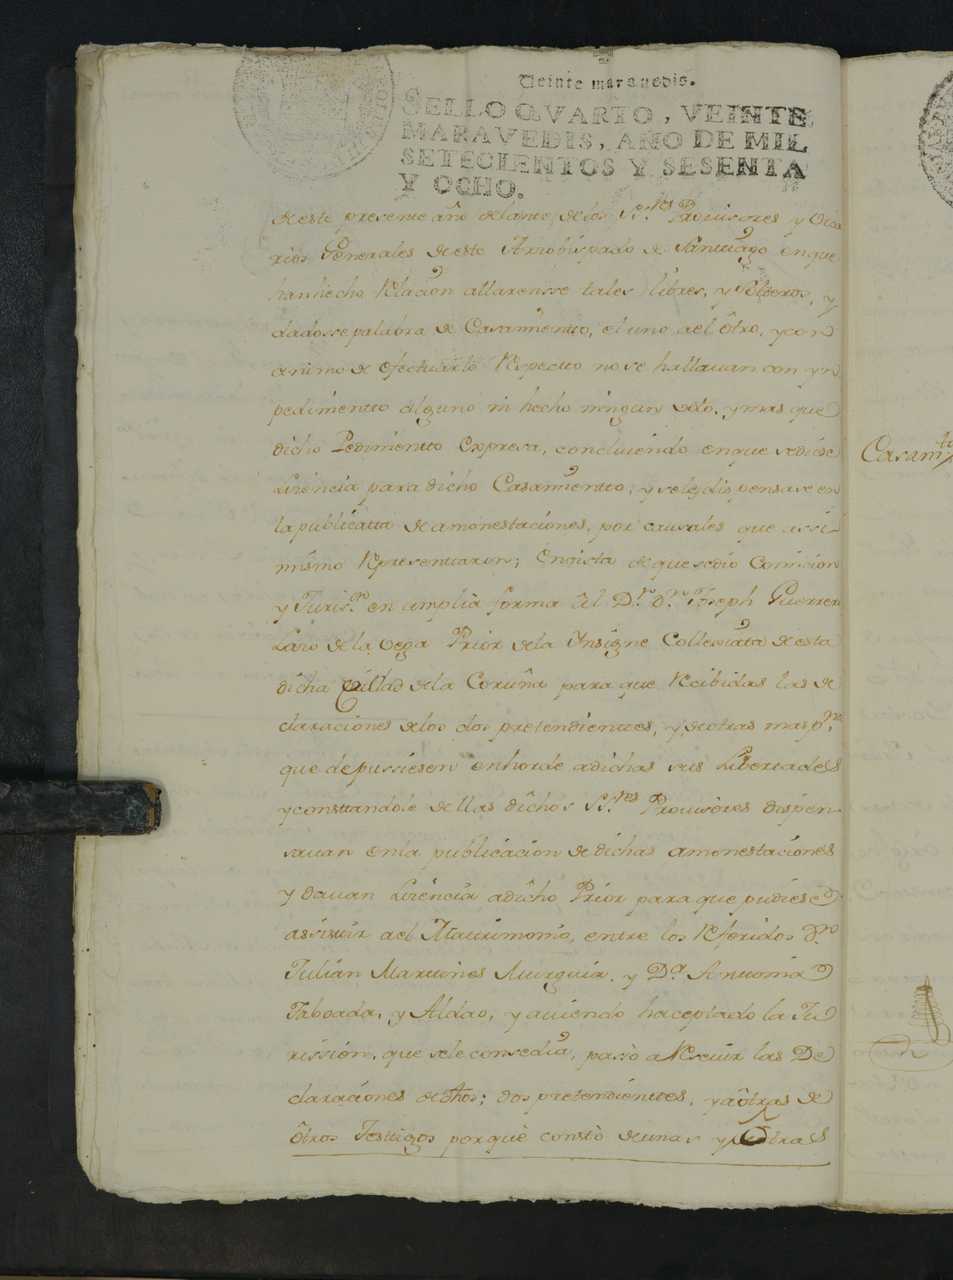 Veinte maravedis.
SELLO QVARTO, VEINTE
MARAVEDIS, AÑO DE MIL
SETECIENTOS Y SESENTA
Y OCHO.
de este presente año delante de los S.res Provisores y Vica
rios Generales de este Arzobispado de Santiago en que
han hecho Relacion allarensse tales libres, y solteros, y
dadosse palabra de Casamientto, el uno ael ôtro, y con
animo de efectuarlo Respectto no se hallavan con yn
pedimentto alguno ni hecho ningun voto, y mas que
dicho Pedimientto Expresa, concluiendo en que se diese
Lizencia para dicho Casamientto, y se les dispensase en
la publicatta de amonestaciones, por causales que assi
mismo Representtaron; En vista de que se dio Comision
y Juris.on en amplia forma ael D.r D.n Joseph Guerrero
Lazo de la Vega Prior de la Ynsigne Collegiata de esta
dicha Ciudad de la Coruña para que Recibidas las de
claraciones de los dos pretendienttes, y de otras mas p.nas
que depussiesen en horde a dichas sus Libertades
y consttandole dellas dichos S.res Provisores dispen
savan en la publicacion de dichas amonestaciones
y davan Lizencia a dicho Prior para que pudiese
assistir ael Matrimonio, entre los Referidos D.n
Julian Martines Murguia, y D.a Antonia
Taboada, y Aldao, y aviendo haceptado la Ju
rission, que se le consedia, passò a Recivir las De
claraciones de dhos; dos pretendienttes, y a ôtras de
ôtros Testtigos por que constò de unas y ôtras
Casam.to